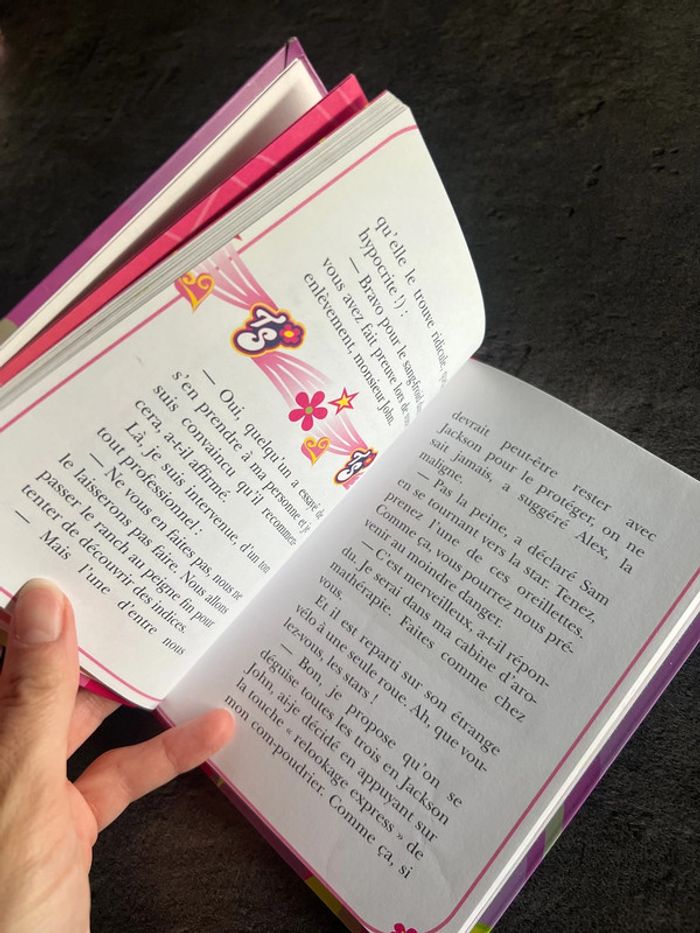 qu'elle le trouve ridicule,
hypocrite !) :
— Bravo pour le sang-froid
vous avez fait preuve lors de
enlèvement, monsieur John.
— Oui, quelqu'un a essayé de
s'en prendre à ma personne et je
suis convaincu qu'il recommen-
cera, a-t-il affirmé.
Là, je suis intervenue, d'un ton
tout professionnel :
— Ne vous en faites pas, nous ne
le laisserons pas faire. Nous allons
passer le ranch au peigne fin pour
tenter de découvrir des indices.
— Mais l'une d'entre nous
devrait peut-être rester avec
Jackson pour le protéger, on ne
sait jamais, a suggéré Alex, la
maligne.
— Pas la peine, a déclaré Sam
en se tournant vers la star. Tenez,
prenez l'une de ces oreillettes.
Comme ça, vous pourrez nous pré-
venir au moindre danger.
— C'est merveilleux, a-t-il répon-
du. Je serai dans ma cabine d'aro-
mathérapie. Faites comme chez
vous.
Et il est reparti sur son étrange
vélo à une seule roue. Ah, que vou-
lez-vous, les stars !
— Bon, je propose qu'on se
déguise toutes les trois en Jackson
John, ai-je décidé en appuyant sur
la touche « relookage express » de
mon com-poudrier. Comme ça, si